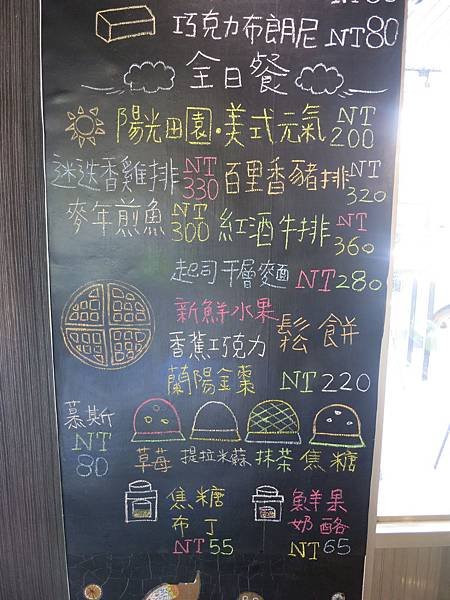 巧克力布朗尼 NT80
全日餐
陽光田園·美式元氣 NT200
迷迭香雞排 NT330 百里香豬排 NT320
麥年煎魚 NT300 紅酒牛排 NT360
起司千層麵 NT280
新鮮水果
香蕉巧克力 鬆餅
蘭陽金棗 NT220
慕斯 NT80
草莓 提拉米蘇 抹茶 焦糖
焦糖布丁 NT55
鮮果奶酪 NT65